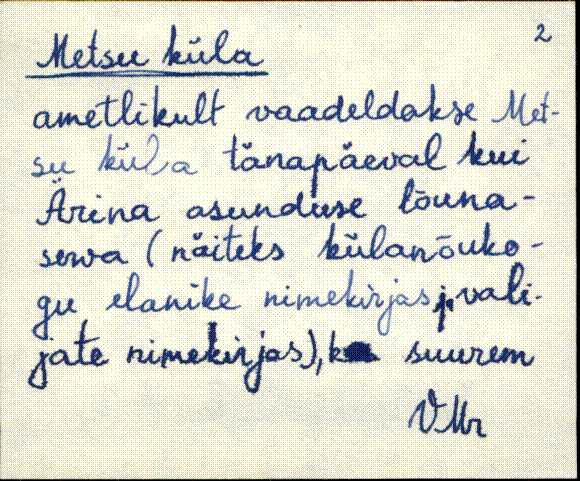 2
Metsu küla
ametlikult vaadeldakse Met-
su küla tänapäeval kui
Ärina asunduse lõuna-
serva (näiteks külanõuko-
gu elanike nimekirjas j. vali-
jate nimekirjas), ka suurem
VMr